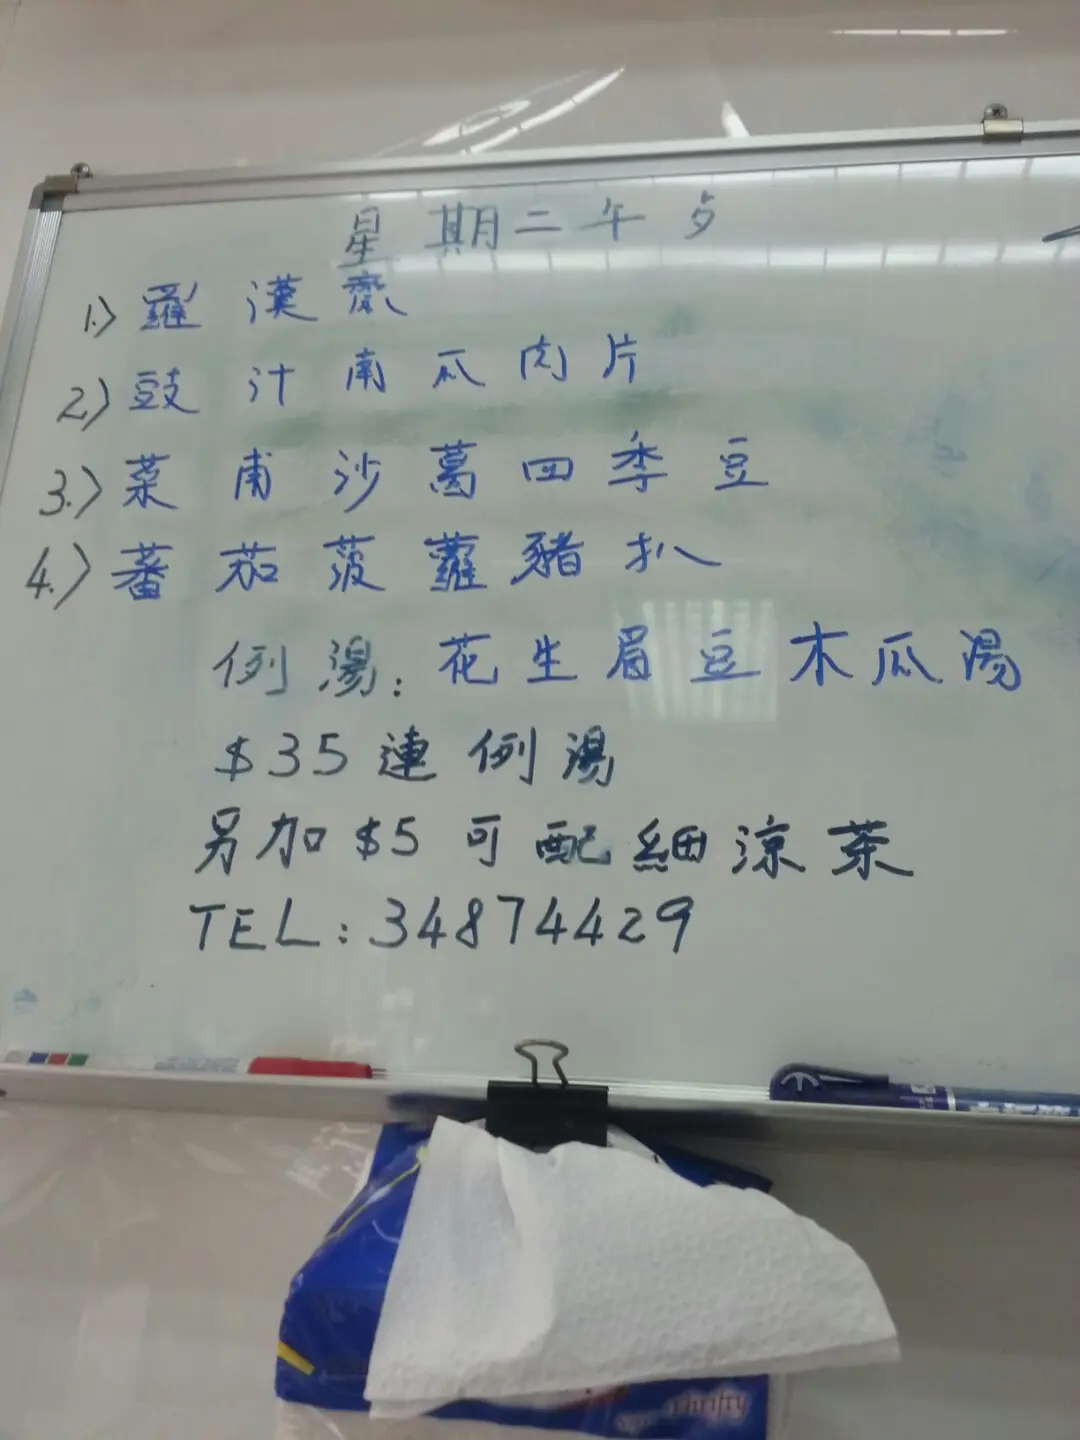 星期二午歺
1.) 羅漢齋
2.) 豉汁南瓜肉片
3.) 菜甫沙葛四季豆
4.) 蕃茄菠蘿豬扒
例湯: 花生眉豆木瓜湯
$35連例湯
另加$5可配細涼茶
TEL: 34874429
Thrifty